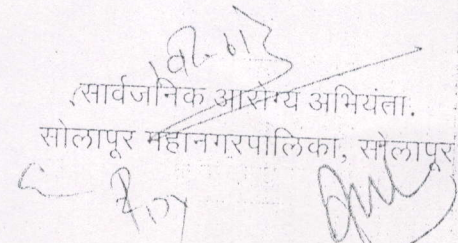 सार्वजनिक आरोग्य अभियंता.
सोलापूर महानगरपालिका, सोलापूर